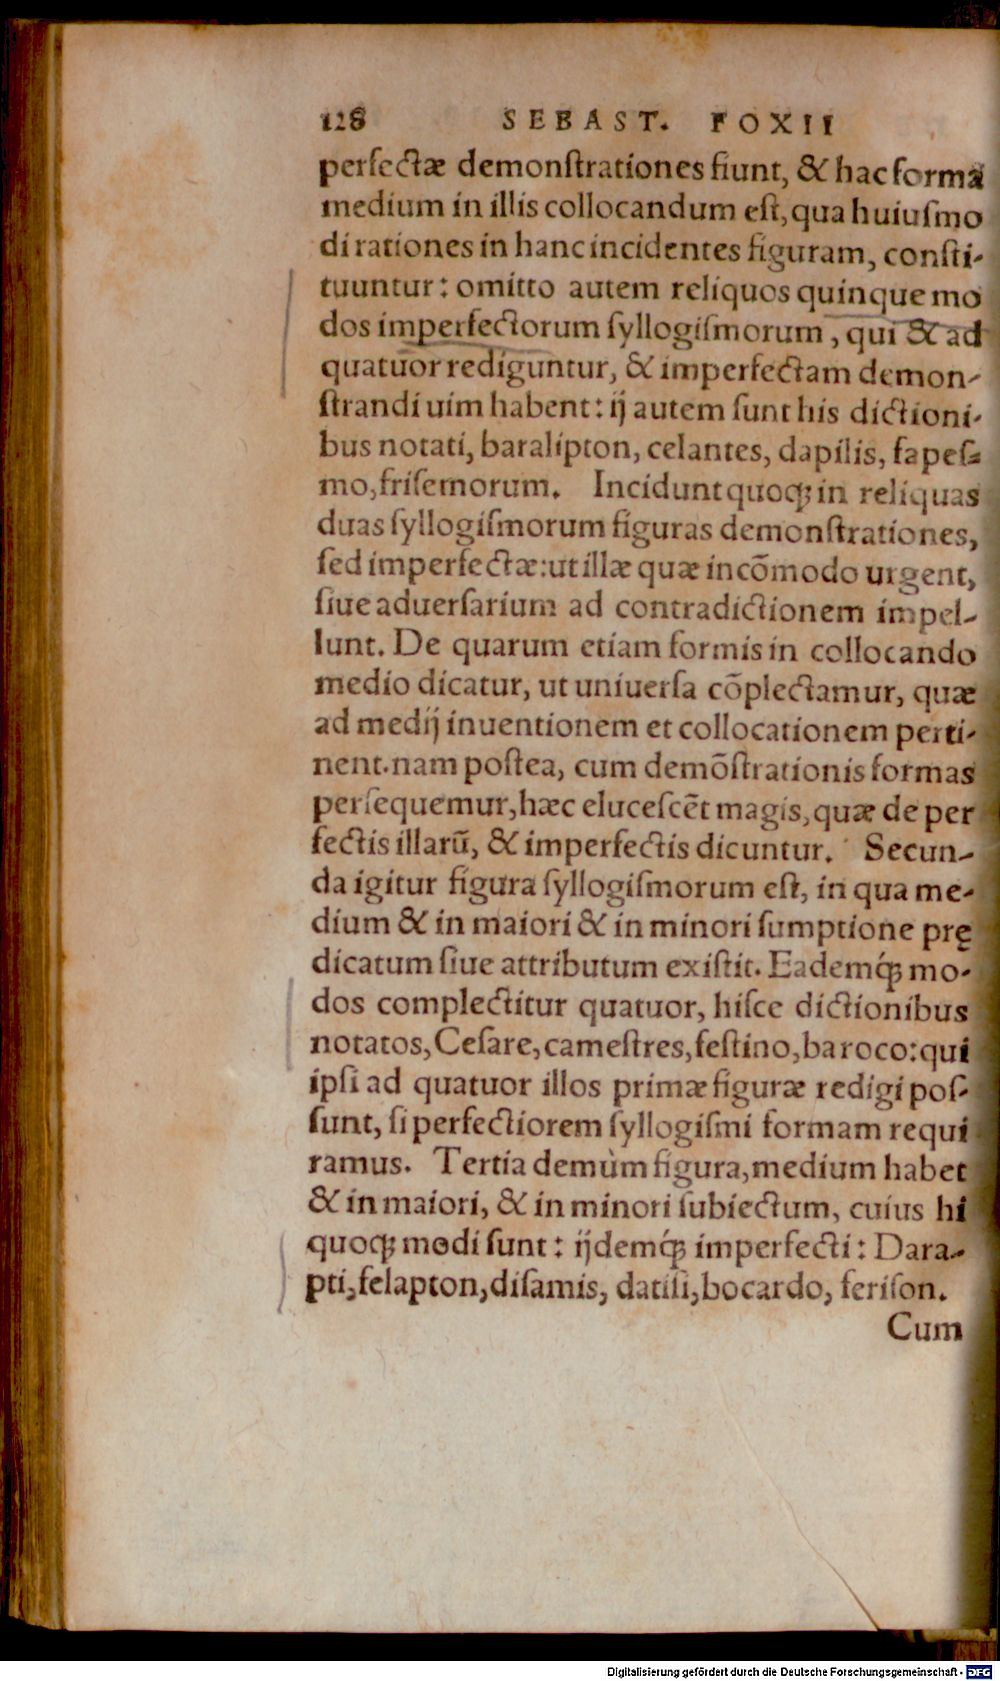 128 SEBAST. FOXII
perfectæ demonſtrationes fiunt, & hac forma
medium in illis collocandum eſt, qua huiuſmo
di rationes in hanc incidentes figuram, conſti-
tuuntur: omitto autem reliquos quinque mo
dos imperfectorum ſyllogiſmorum, qui & ad
quatuor rediguntur, & imperfectam demon-
ſtrandi uim habent: ij autem ſunt his dictioni-
bus notati, baralipton, celantes, dapilis, fapeſ-
mo, friſemorum. Incidunt quoq; in reliquas
duas ſyllogiſmorum figuras demonſtrationes,
ſed imperfectæ: ut illæ quæ incõmodo urgent,
ſiue aduerſarium ad contradictionem impel-
lunt. De quarum etiam formis in collocando
medio dicatur, ut uniuerſa cõplectamur, quæ
ad medij inuentionem et collocationem perti-
nent. nam poſtea, cum demõſtrationis formas
perſequemur, hæc eluceſcẽt magis, quæ de per
fectis illarũ, & imperfectis dicuntur. Secun-
da igitur figura ſyllogiſmorum eſt, in qua me-
dium & in maiori & in minori ſumptione prę
dicatum ſiue attributum exiſtit. Eademq́; mo-
dos complectitur quatuor, hiſce dictionibus
notatos, Ceſare, cameſtres, feſtino, baroco: qui
ipſi ad quatuor illos primæ figuræ redigi poſ-
ſunt, ſi perfectiorem ſyllogiſmi formam requi
ramus. Tertia demùm figura, medium habet
& in maiori, & in minori ſubiectum, cuius hi
quoq; modi ſunt: ijdemq́; imperfecti: Dara-
pti, felapton, diſamis, datiſi, bocardo, feriſon.
Cum
Digitalisierung gefördert durch die Deutsche Forschungsgemeinschaft - DFG